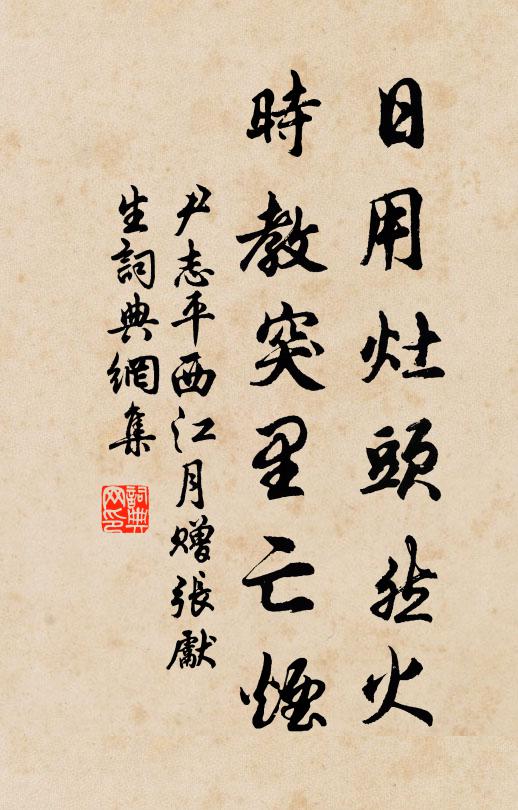 日用灶頭然火
時教突里亡煙
尹志平西江月贈張獻
生詞典網集
詞典网印